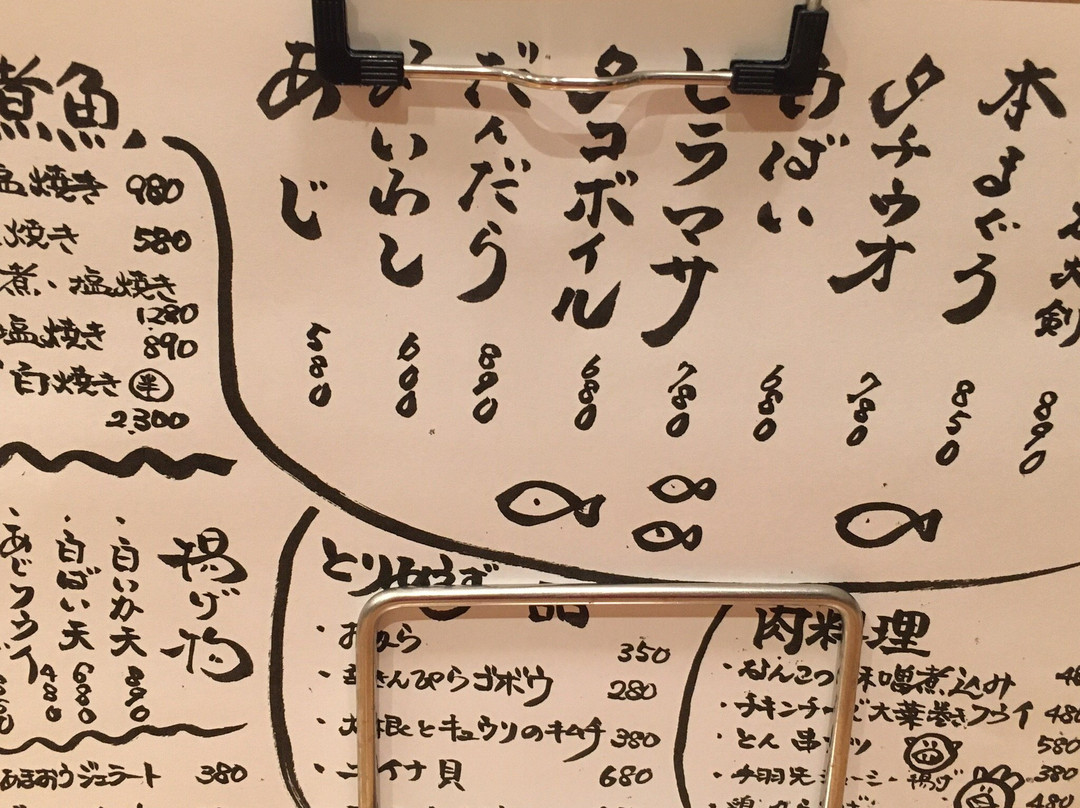 本まぐろ 850
タチウオ 780
うばい 680
ヒラマサ 780
タコボイル 680
だんだら 890
いわし 600
あじ 580
煮魚
塩焼き 980
焼き 580
煮・塩焼き
1280
塩焼き 890
白焼き 半
2,300
揚げ物
・白いか天 890
・白ばい天 680
・あじフライ 480
あまおうジェラート 380
とりあえず 品
・おくら 350
きんぴらゴボウ 280
・大根とキュウリのキムチ 380
・ニイナ貝 680
肉料理
・なんこつの味噌煮込み
・チキンチーズ大葉巻きフライ 480
・とん串カツ 580
・手羽先 揚げ 380